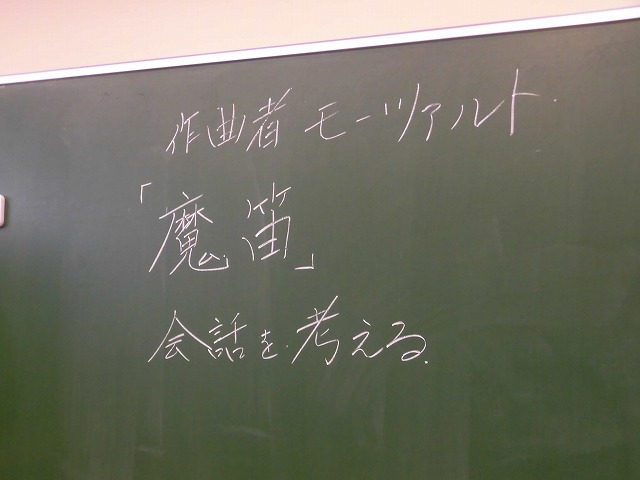 作曲者 モーツァルト.
「魔笛」
会話を考える.